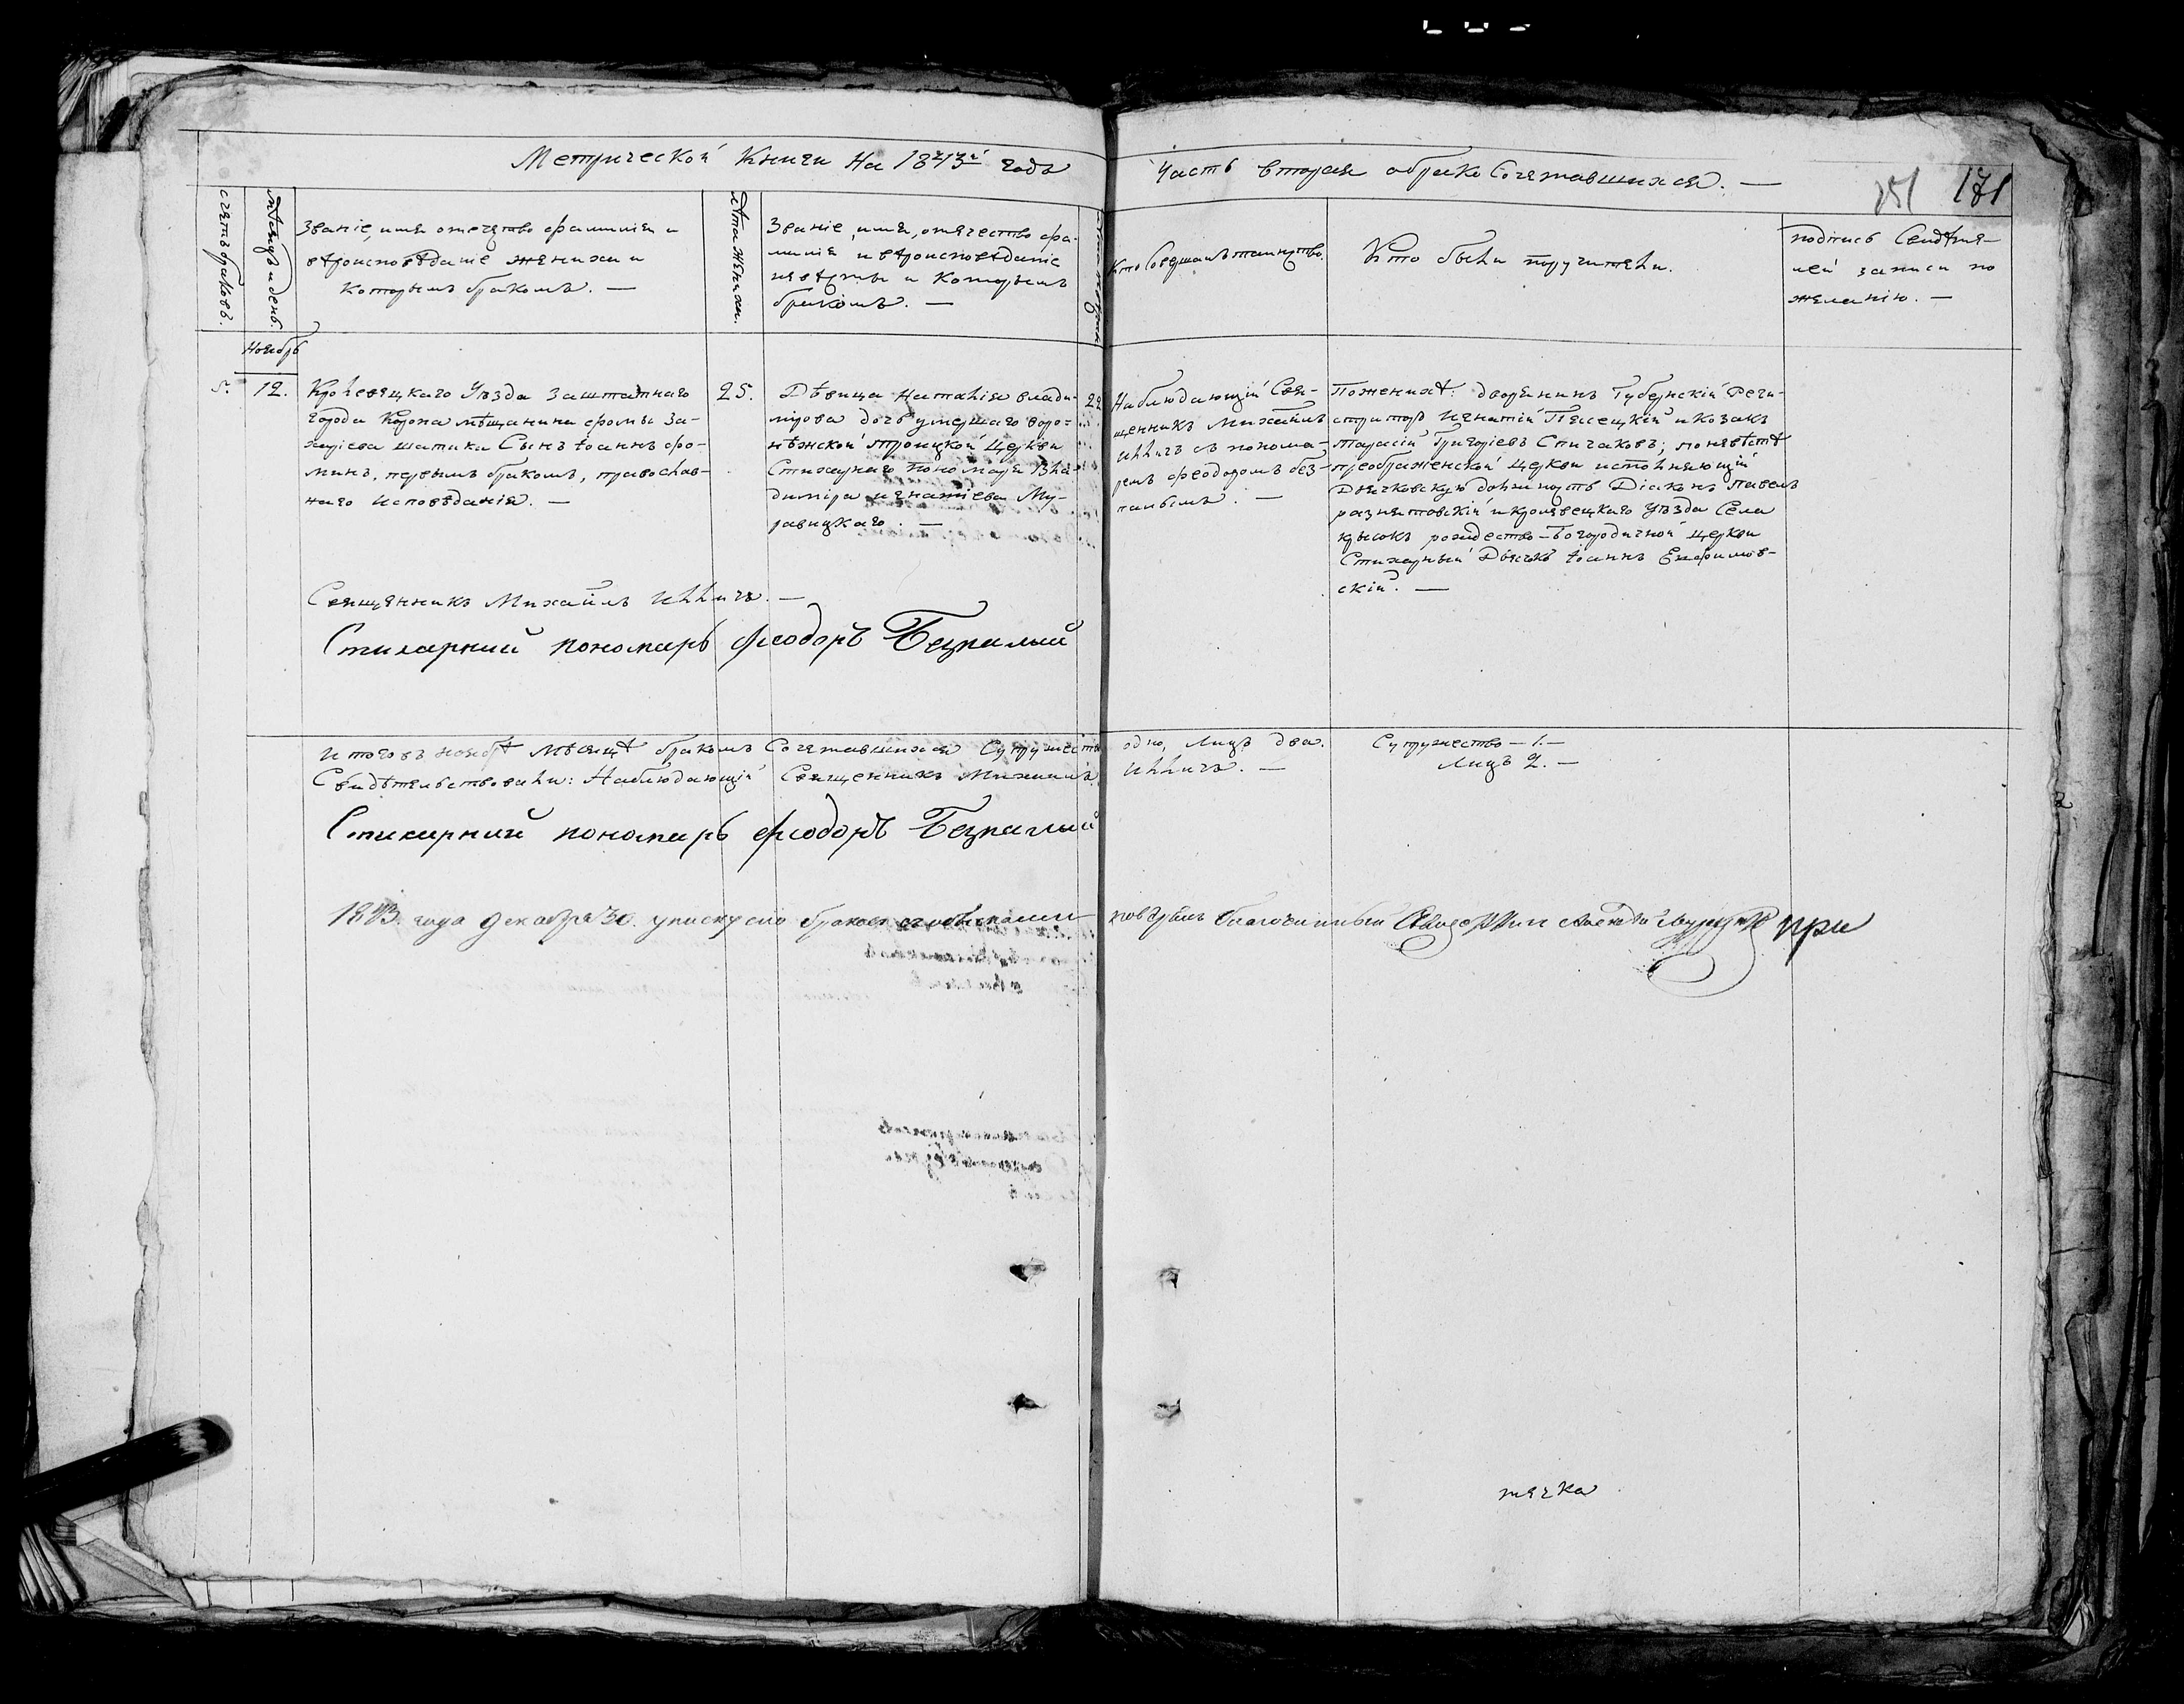 Метрической Книги На 1843й года
Часть вторая о брако Сочетавшихся. —
171
счетъ браковъ.
мѣсяцъ и день.
Званіе, имя отечество фамилія и
вѣроисповѣданіе жениха и
которымъ бракомъ. —
Лѣта жениха.
Званіе, имя, отечество фа-
милія и вѣроисповѣданіе
невѣсты и которымъ
бракомъ. —
Кто совершалъ таинство.
Кто были поручители.
подпись Свидѣте-
лей записи по
желанію. —
Ноябрь
5. 12.
Кролевецкаго Уѣзда Заштатнаго
города Коропа мѣщанина Фомы За-
харіева Шатика Сынъ Іоаннъ Фо-
минъ, первымъ бракомъ, православ-
наго исповѣданія. —
25.
Дѣвица Наталія Влади-
мірова дочь умершаго Воро-
нѣжской Троицкой Церкви
Стихарнаго Пономаря Вла-
диміра Игнатіева Му-
равицкаго. —
22
Наблюдающій Свя-
щенникъ Михаилъ
Илличъ съ понома-
ремъ Феодоромъ Без-
палымъ. —
По женихѣ: дворянинъ Губернскій Реги-
страторъ Игнатій Пясецкій и Козакъ
Тарасій Григоріевъ Спичаковъ; по невѣстѣ
преображенской Церкви исполняющій
Дьячковскую должность Діаконъ Павелъ
разнятовскій и кролевецкаго Уѣзда Села
крысокъ рождество-Богородичной Церкви
Стихарный Дьячокъ Іоаннъ Ефимов-
скій. —
Священникъ Михаилъ Илличъ. —
Стихарний пономарь Феодоръ Безпалый
Итого въ ноябрѣ мѣсяцѣ бракомъ Сочетавшихся Супружество одно, лицъ два. Супружество — 1. —
Свидѣтельствовали: Наблюдающій Священникъ Михаилъ Илличъ. — Лицъ 2. —
Стихарний пономарь Феодоръ Безпалый
1843. года декабря 30.
повѣрялъ благочинный при
тячка